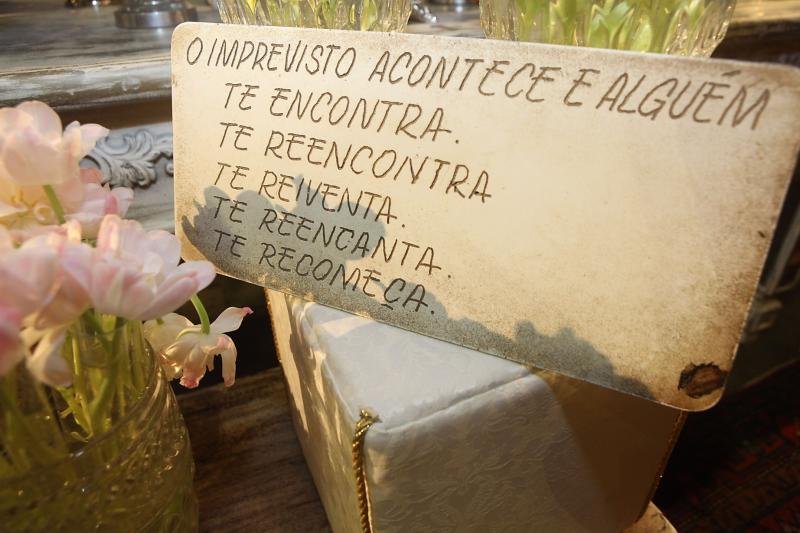 O IMPREVISTO ACONTECE E ALGUÉM
TE ENCONTRA.
TE REENCONTRA
TE REIVENTA.
TE REENCANTA.
TE RECOMEÇA.